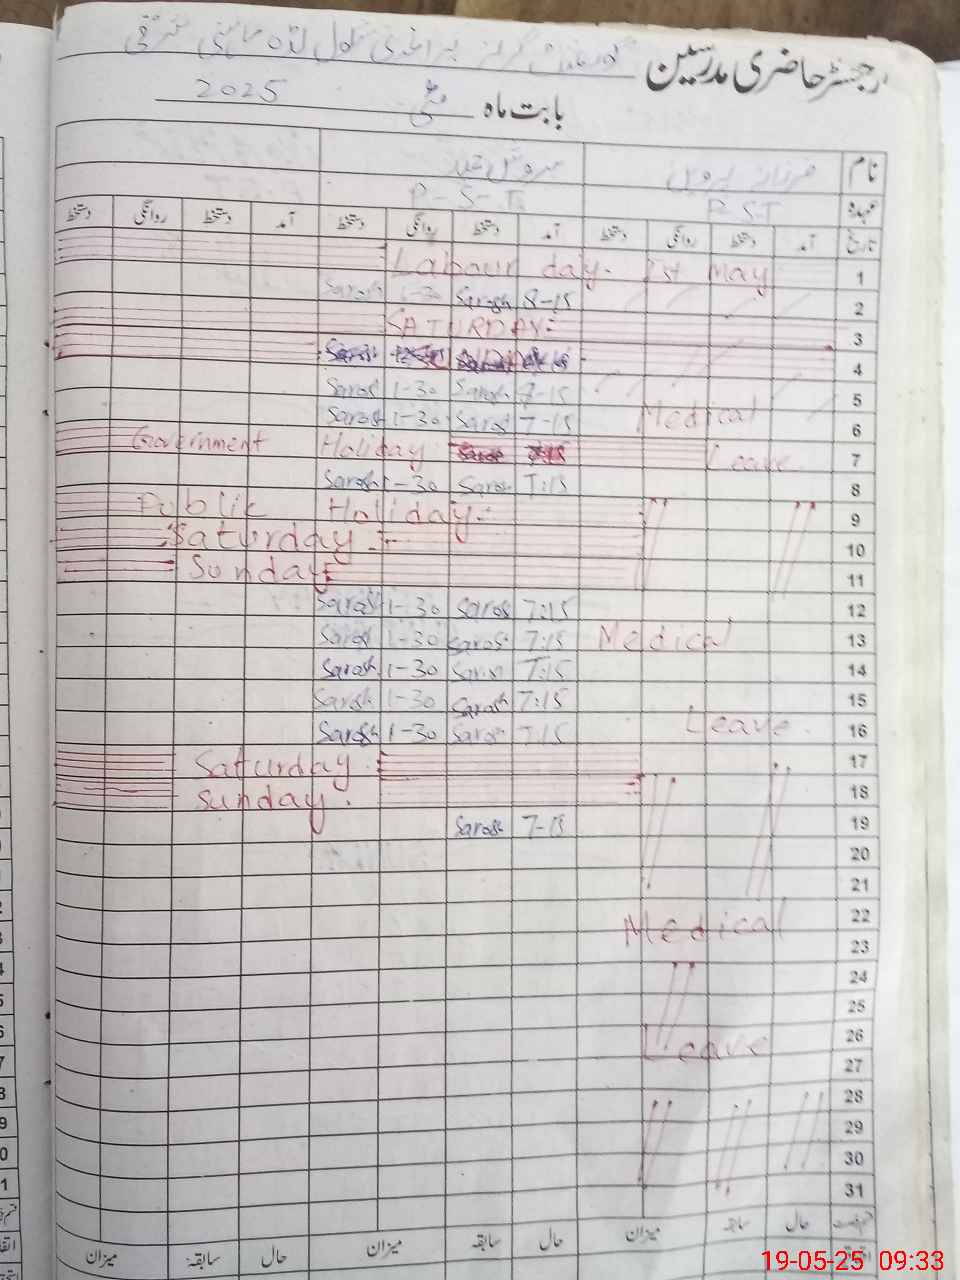 رجسٹر حاضری مدرسین گورنمنٹ گرلز پرائمری سکول
بابت ماہ مئی 2025
نام
عہدہ P-S-T P-S-T
تاریخ آمد دستخط روانگی دستخط آمد دستخط روانگی دستخط آمد دستخط روانگی دستخط
Labour day. 1st May 1
Sarosh 1-30 Sarosh 8-15 2
SATURDAY 3
4
Sarosh 1-30 Sarosh 5
Sarosh 1-30 Sarosh 7-15 Medical 6
Government Holiday Leave. 7
Sarosh 1-30 Sarosh 7:15 8
Public Holiday 9
Saturday 10
Sunday 11
Sarosh 1-30 Sarosh 7:15 12
Sarosh 1-30 Sarosh 7:15 Medical 13
Sarosh 1-30 Sarosh 7:15 14
Sarosh 1-30 Sarosh 7:15 15
Sarosh 1-30 Sarosh 7:15 Leave. 16
Saturday. 17
Sunday. 18
Sarosh 7-15 19
20
21
Medical 22
23
24
25
Leave 26
27
28
29
30
31
حال سابقہ میزان حال سابقہ میزان حال سابقہ میزان
19-05-25 09:33